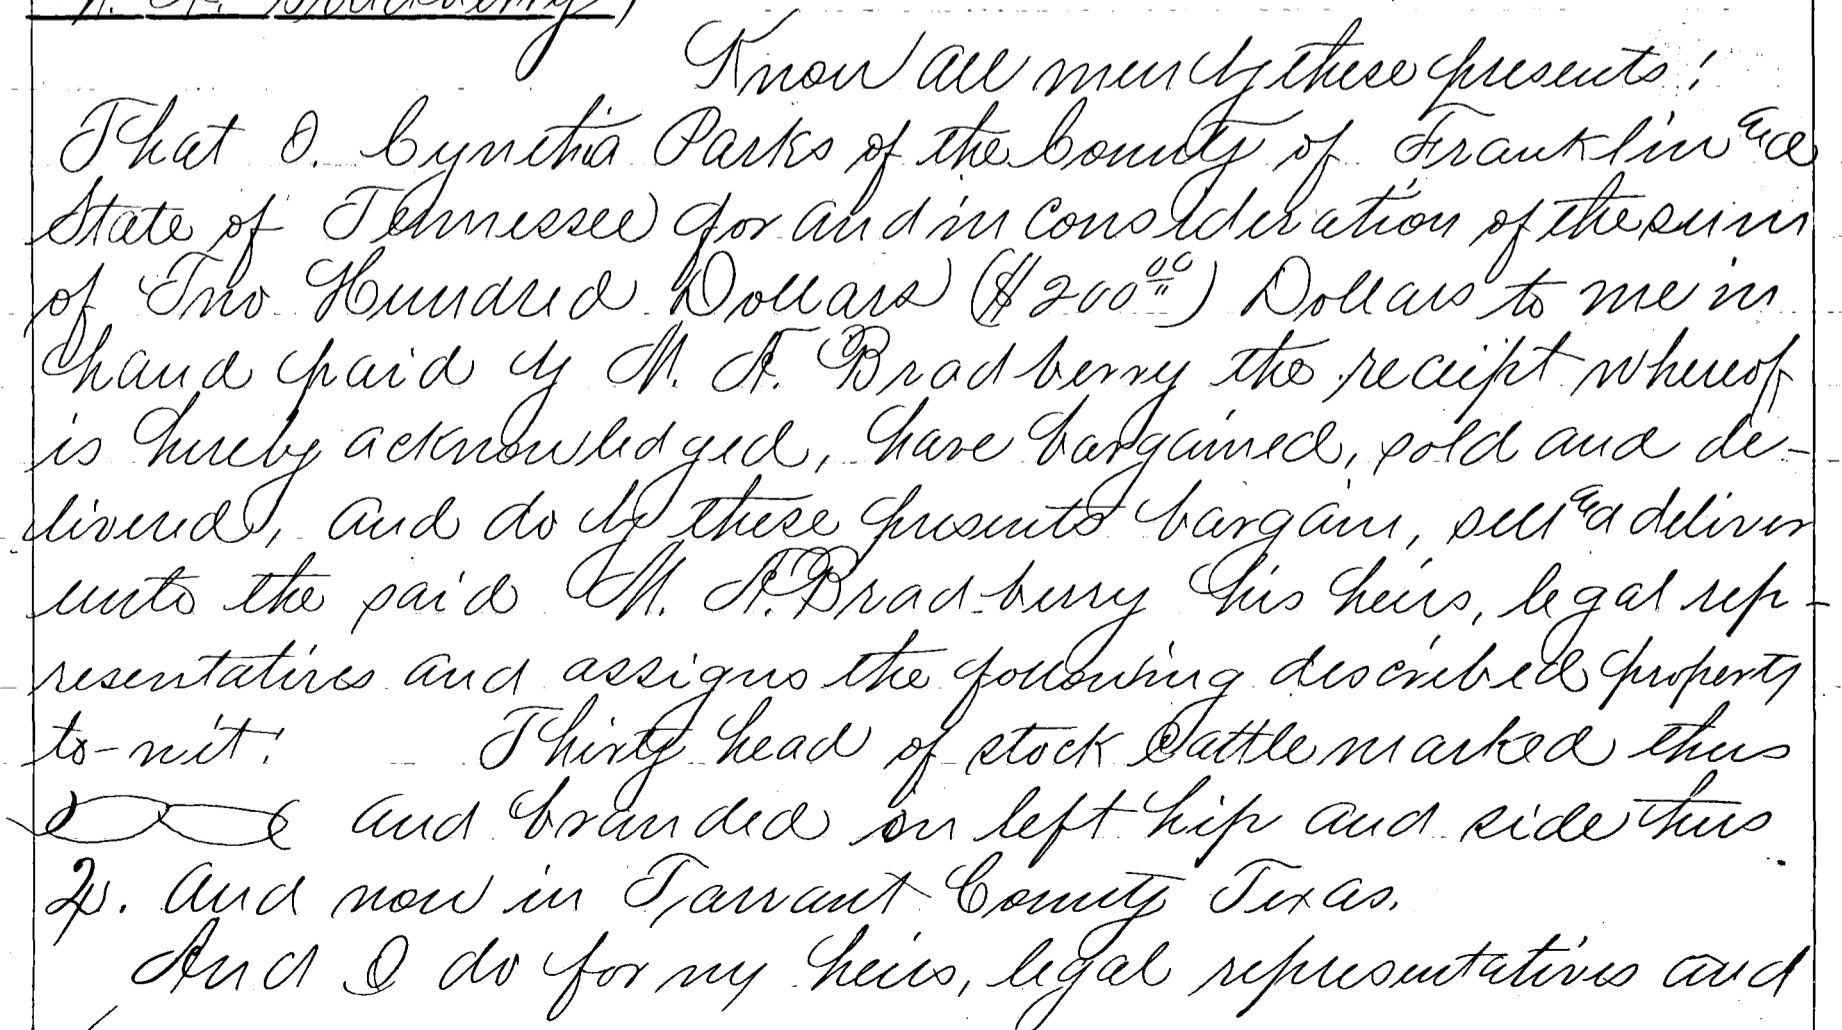 Bradberry
Know all men by these presents:
That I. Cynthia Parks of the County of Franklin and
State of Tennessee for and in consideration of the sum
of Two Hundred Dollars ($200.00) Dollars to me in
hand paid by M. A. Bradberry the receipt whereof
is hereby acknowledged, have bargained, sold and de-
livered, and do by these presents bargain, sell and deliver
unto the said M. A. Bradberry his heirs, legal rep-
resentatives and assigns the following described property
to-wit: Thirty head of stock Cattle marked thus
and branded on left hip and side thus
. And now in Tarrant County Texas.
And I do for my heirs, legal representatives and